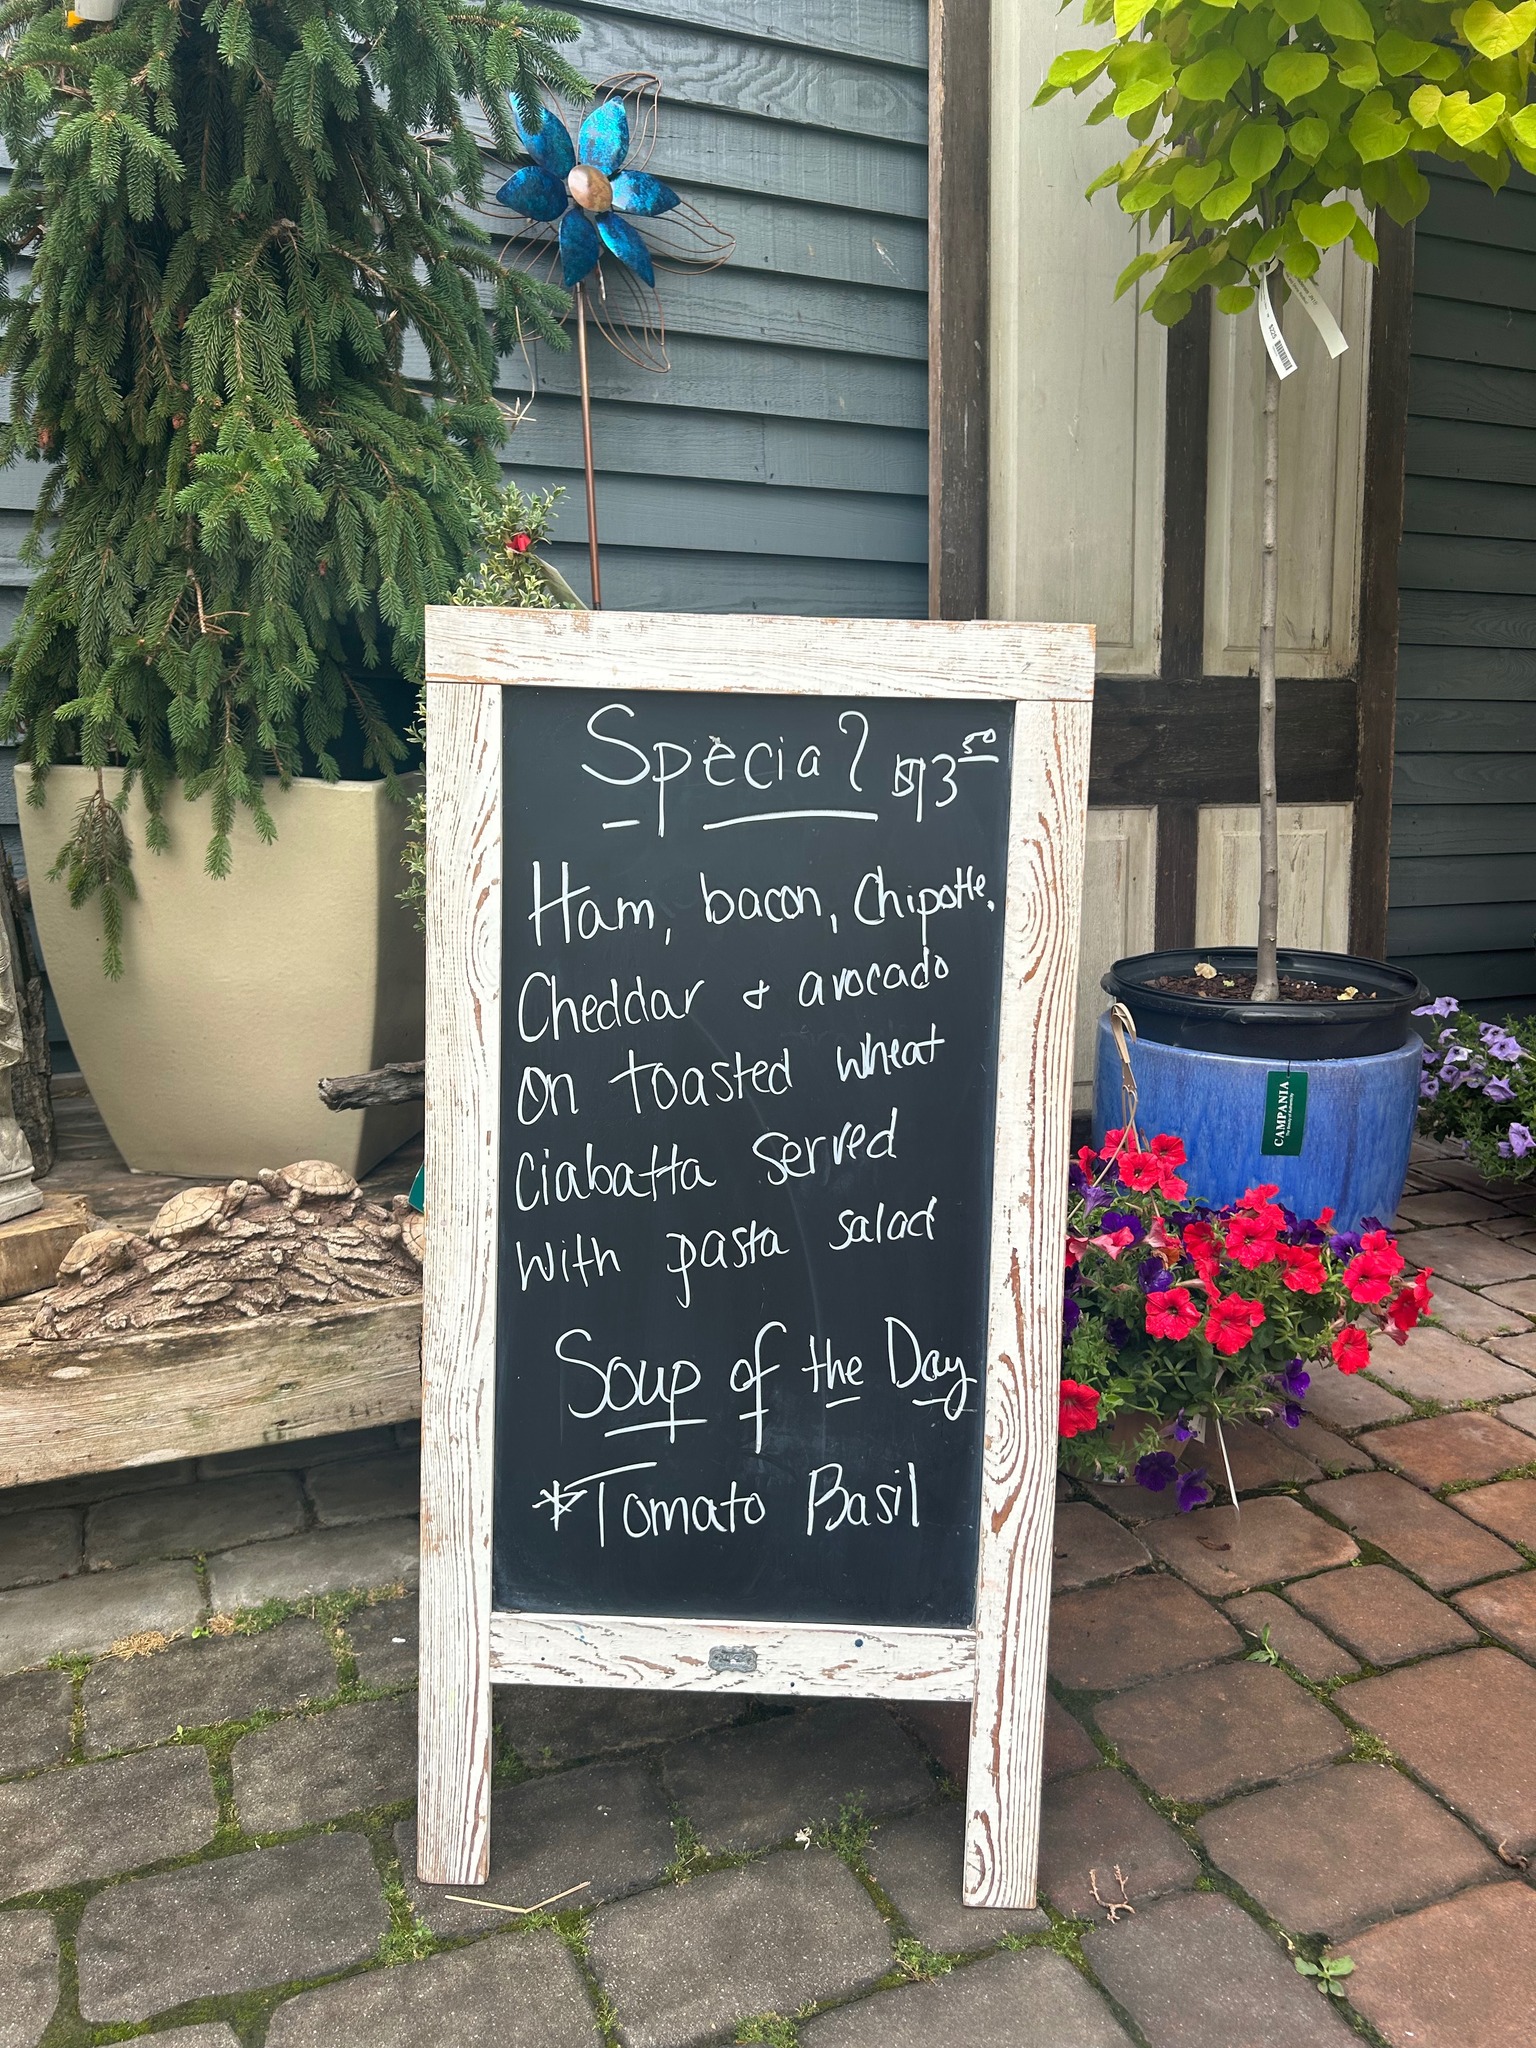 Special $13.50
Ham, bacon, Chipotle,
Cheddar & avocado
on toasted wheat
Ciabatta served
with pasta salad
Soup of the Day
*Tomato Basil
CAMPANIA